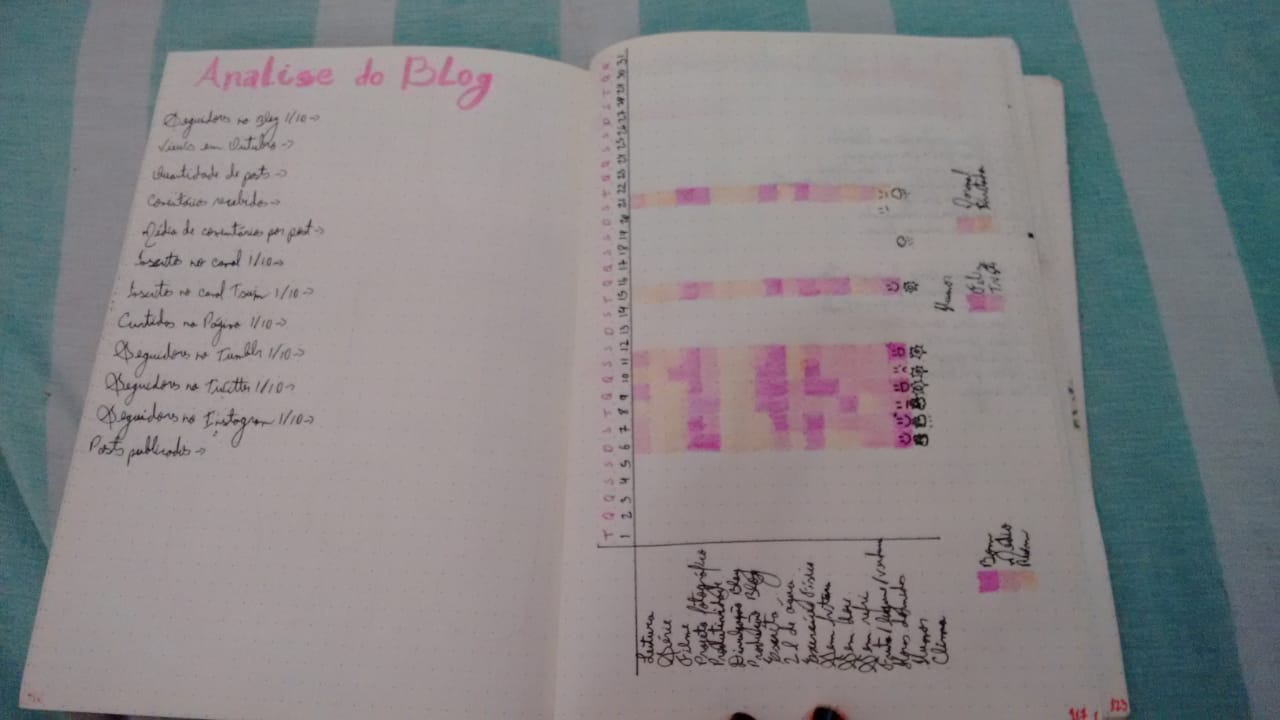 Analise do Blog
Seguidores no Blog 1/10->
Views em Outubro->
Quantidade de posts->
Comentários recebidos->
Média de comentários por post->
Inscritos no canal 1/10->
Inscritos no canal 1/10->
Curtidas na Página 1/10->
Seguidores no Tumblr 1/10->
Seguidores no Twitter 1/10->
Seguidores no Instagram 1/10->
Posts publicados->
T Q Q S S D S T Q Q S S D S T Q Q S S D S T Q Q S S D S T Q Q
1 2 3 4 5 6 7 8 9 10 11 12 13 14 15 16 17 18 19 20 21 22 23 24 25 26 27 28 29 30 31
Leitura
Série
Filme
Projeto fotográfico
Produtividade
Divulgação Blog
Produção Blog
Escrita
2l de água
Exercício físico
Sem
Sem doce
Sem refri
Fruta/legume/verdura
Horas dormidas
Humor
Clima
Bom
Médio
Ruim
Humor
Feliz
Triste
Normal
323